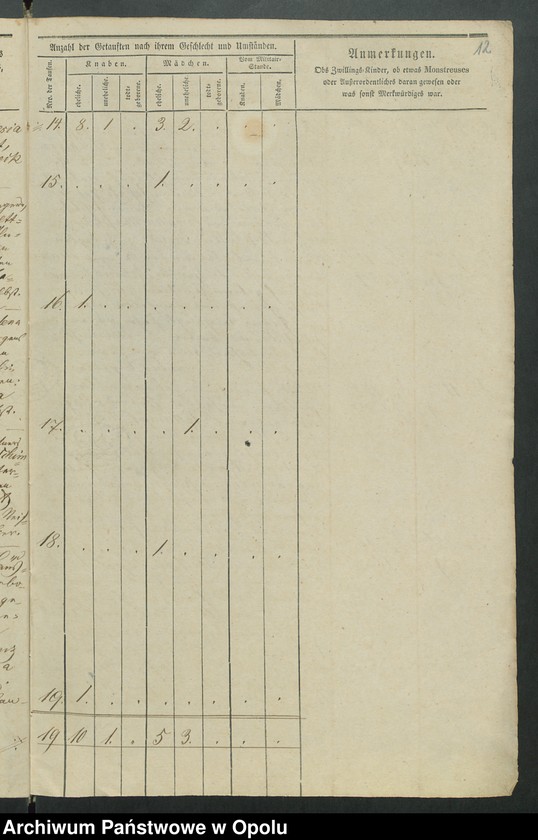 12
Anzahl der Getauften nach ihrem Geschlecht und Umständen.
Anmerkungen.
Obs Zwillings-Kinder, ob etwas Monstroses
oder Außerordentliches daran gewesen oder
was sonst Merkwürdiges war.
Nro. der Taufen.
Knaben.
Mädchen.
Vom Militair-
Stande.
eheliche.
uneheliche.
todte
geborene.
eheliche.
uneheliche.
todte
geborene.
Knaben.
Mädchen.
14. 8. 1 . 3. 2. . . .
15. . . . 1. . . . .
16. 1. . . . . . . .
17. . . . . 1. . . .
18. . . . 1. . . . .
19. 1. . . . . . . .
19 10 1. . 5 3. . . .
Archiwum Państwowe w Opolu